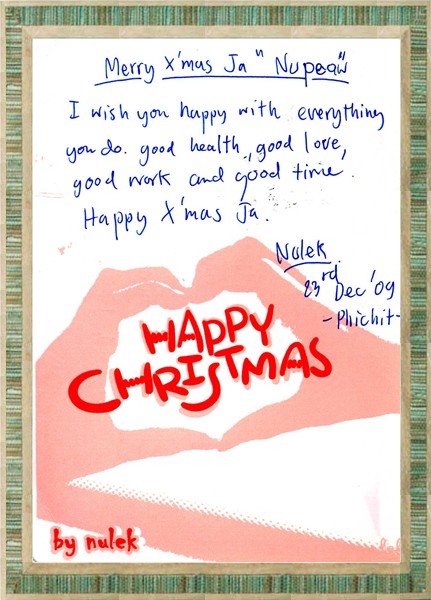 Merry X'mas Ja "Nupeaw"
I wish you happy with everything
you do. good health, good love,
good work and good time.
Happy X'mas Ja.
Nulek
23rd Dec '09
-Phichit-
HAPPY
CHRISTMAS
by nulek